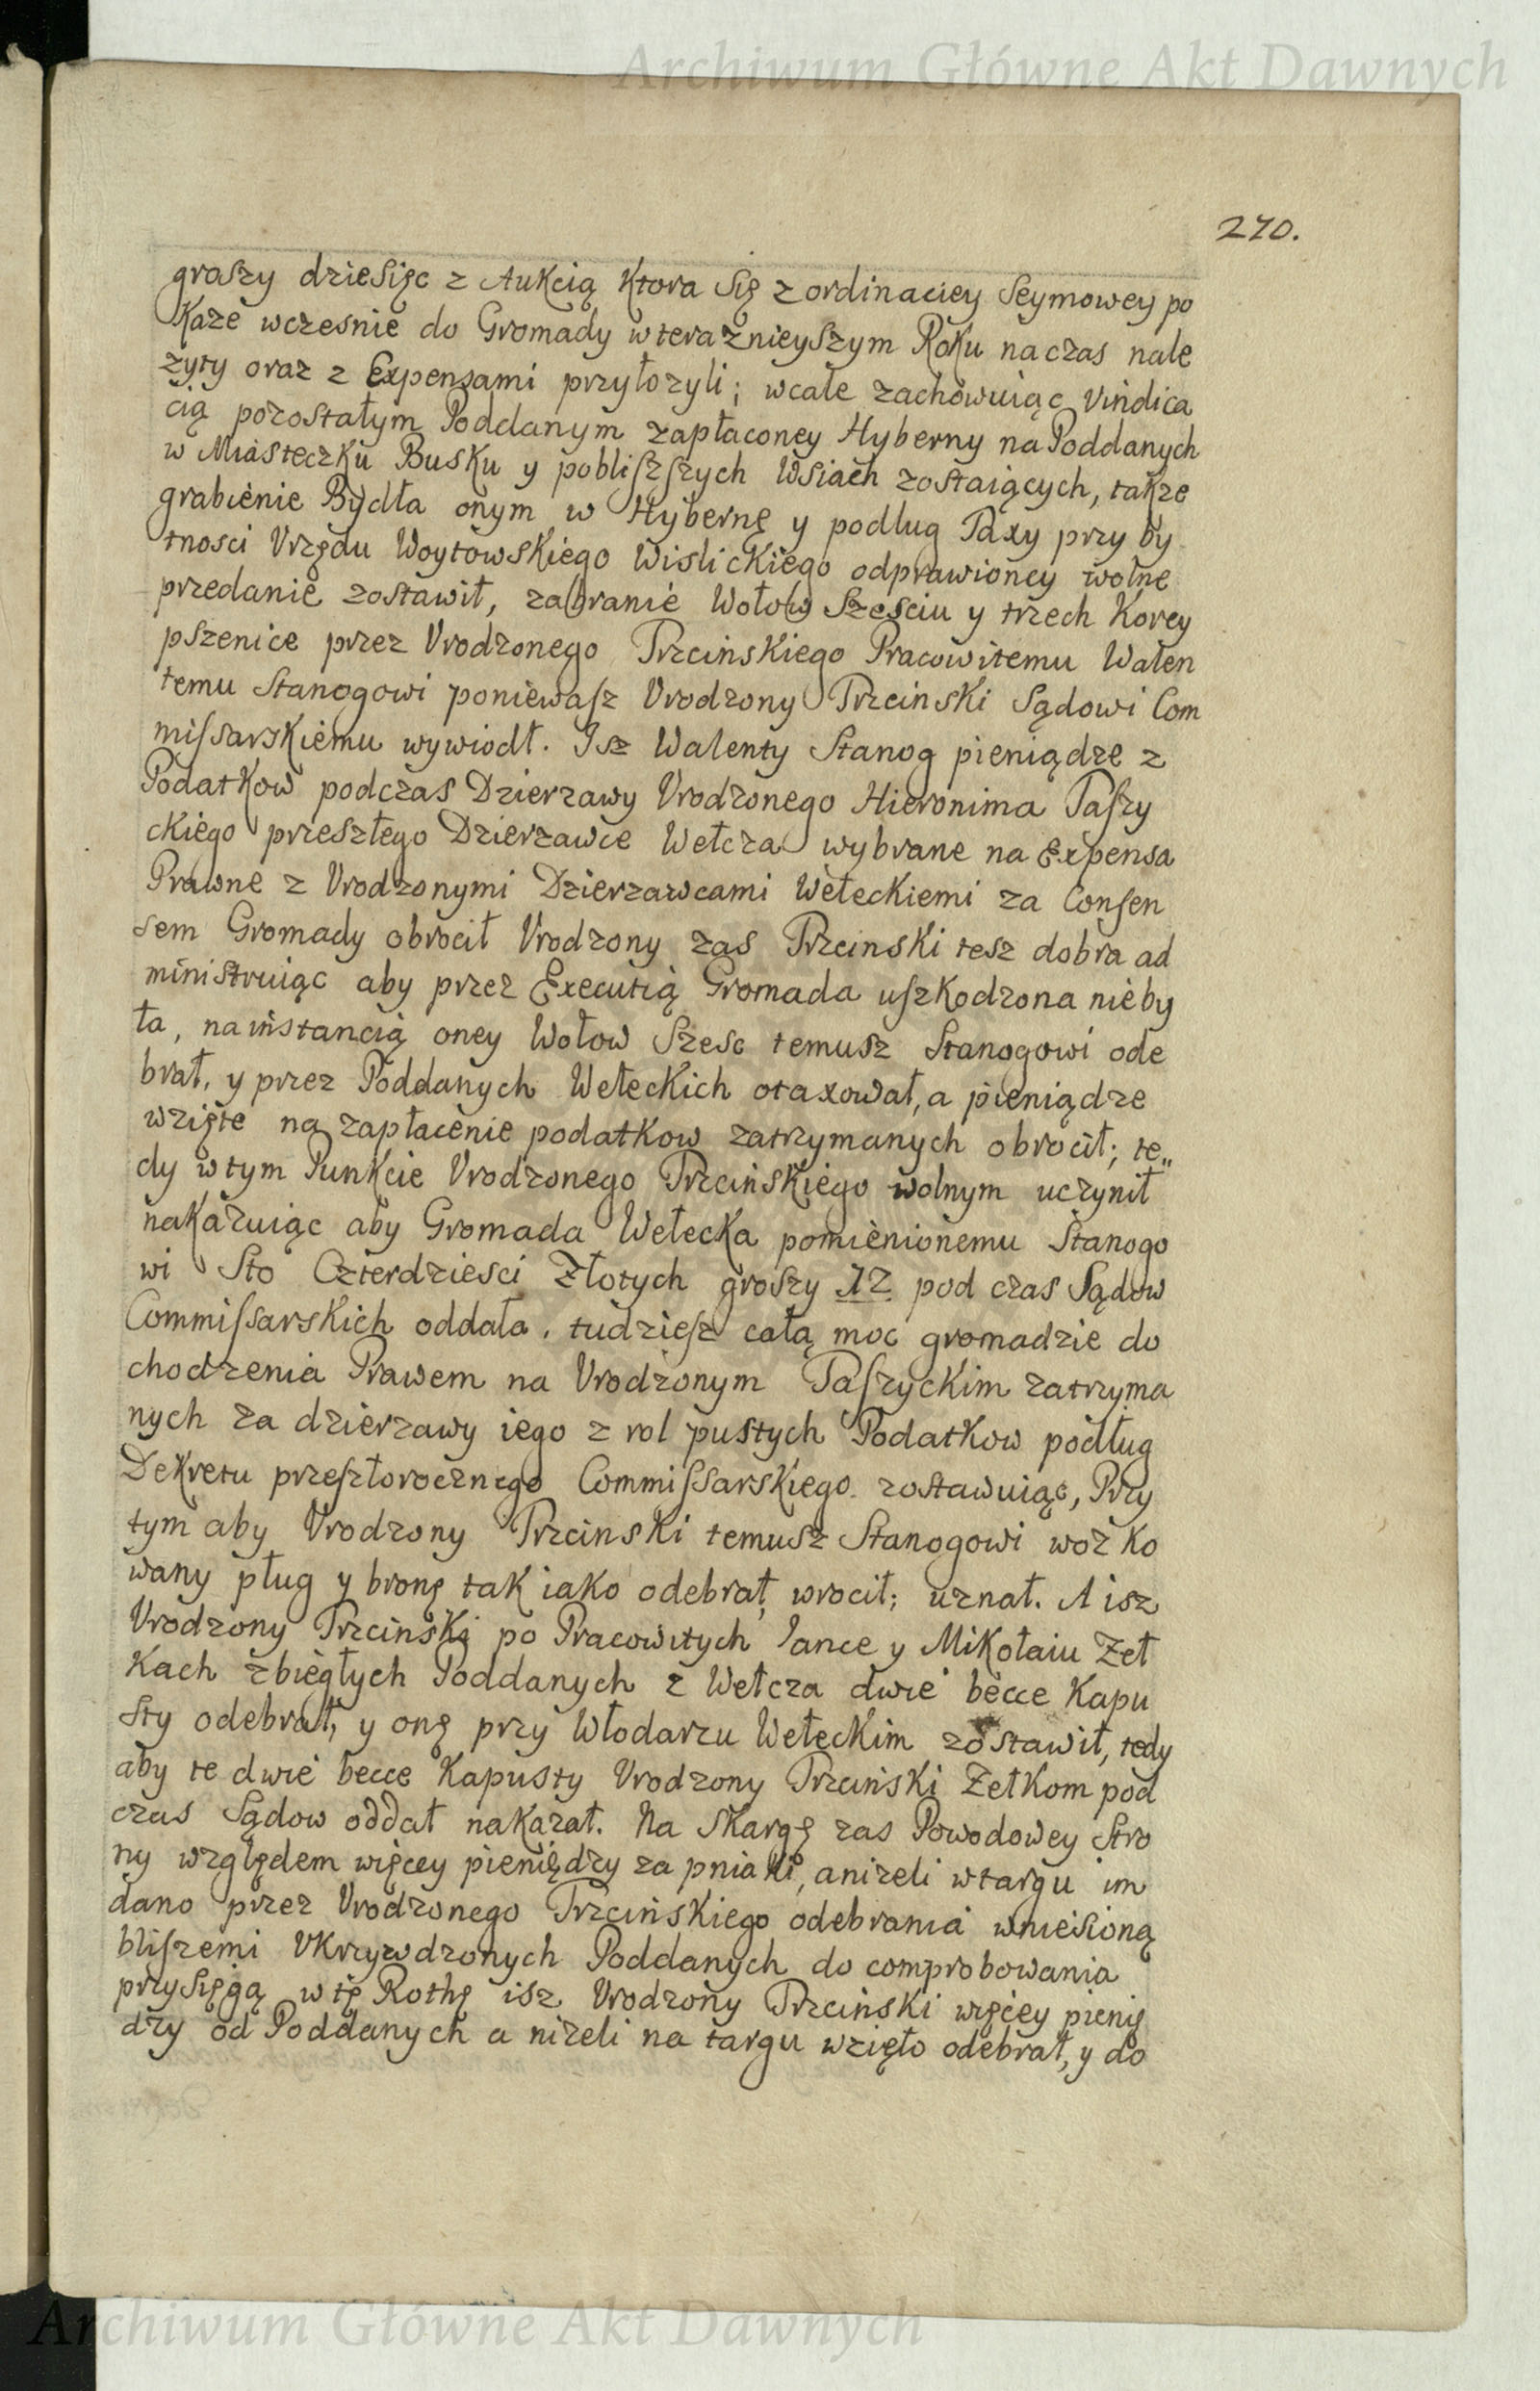 Archiwum Główne Akt Dawnych
270.
graszy dziesięc z Aukcią Ktora się z ordinaciey Seymowey po
Kaze wczesnie do Gromady w terazznieyszym Roku na czas nale
zyty oraz z Expensami przyłozyli; wcale zachowuiąc vindica
cią pozostałym Poddanym zapłaconey Hyberny na Poddanych
w Miasteczku Busku y pobliszszych Wsiach zostaiących, takze
grabienie Bydła onym w Hybernę y podlug Taxy przy by
tnosci Vrzędu Woytowskiego Wislickiego odprawioney wolne
przedanie zostawił, zabranie Wołow Szesciu y trzech Korcy
pszenice przez Vrodzonego Trzcinskiego Pracowitemu Walen
temu Stanogowi poniewasz Vrodzony Trzcinski Sądowi Com
missarskiemu wywiodł. Isz Walenty Stanog pieniądze z
Podatkow podczas Dzierzawy Vrodzonego Hieronima Taszy
ckiego przeszłego Dzierzawce Wełcza wybrane na Expensa
Prawne z Vrodzonymi Dzierzawcami Wełeckiemi za Consen
sem Gromady obrocił Vrodzony zas Trzcinski tesz dobra ad
ministruiąc aby przez Executią Gromada uszkodzona nieby
ła, na instancią oney Wołow Szesc temusz Stanogowi ode
brał, y przez Poddanych Wełeckich otaxował, a pieniądze
wzięte na zapłacenie podatkow zatrzymanych obrocił; te„
dy w tym Punkcie Vrodzonego Trzcińskiego wolnym uczynił
nakazuiąc aby Gromada Wełecka pomienionemu Stanogo
wi Sto Czterdziesci Złotych groszy 12 pod czas Sądow
Commissarskich oddała, tudziesz całą moc gromadzie do
chodzenia Prawem na Vrodzonym Taszyckim zatrzyma
nych za dzierzawy iego z rol pustych Podatkow podług
Dekretu przeszłorocznego Commissarskiego zostawuiąc, Przy
tym aby Vrodzony Trzcinski temusz Stanogowi woz ko
wany pług y bronę tak iako odebrał, wrocił; uznał. A isz
Vrodzony Trzcinski po Pracowitych Jance y Mikołaiu Zeł
Kach zbiegłych Poddanych z Wełcza dwie becce Kapu
sty odebrał, y onę przy Włodarzu Wełeckim zostawił, tedy
aby te dwie becce Kapusty Vrodzony Trzcinski Zełkom pod
czas Sądow oddał nakazał. Na Skargę zas Powodowey Stro
ny względem więcey pieniędzy za pniaki, anizeli w targu im
dano przez Vrodzonego Trzcińskiego odebrania wniesioną
bliszemi Vkrzywdzonych Poddanych do comprobowania
przysięgą w tę Rothę isz Vrodzony Trzcinski więcey pienię
dzy od Poddanych a nizeli na targu wzięto odebrał, y do
Archiwum Główne Akt Dawnych